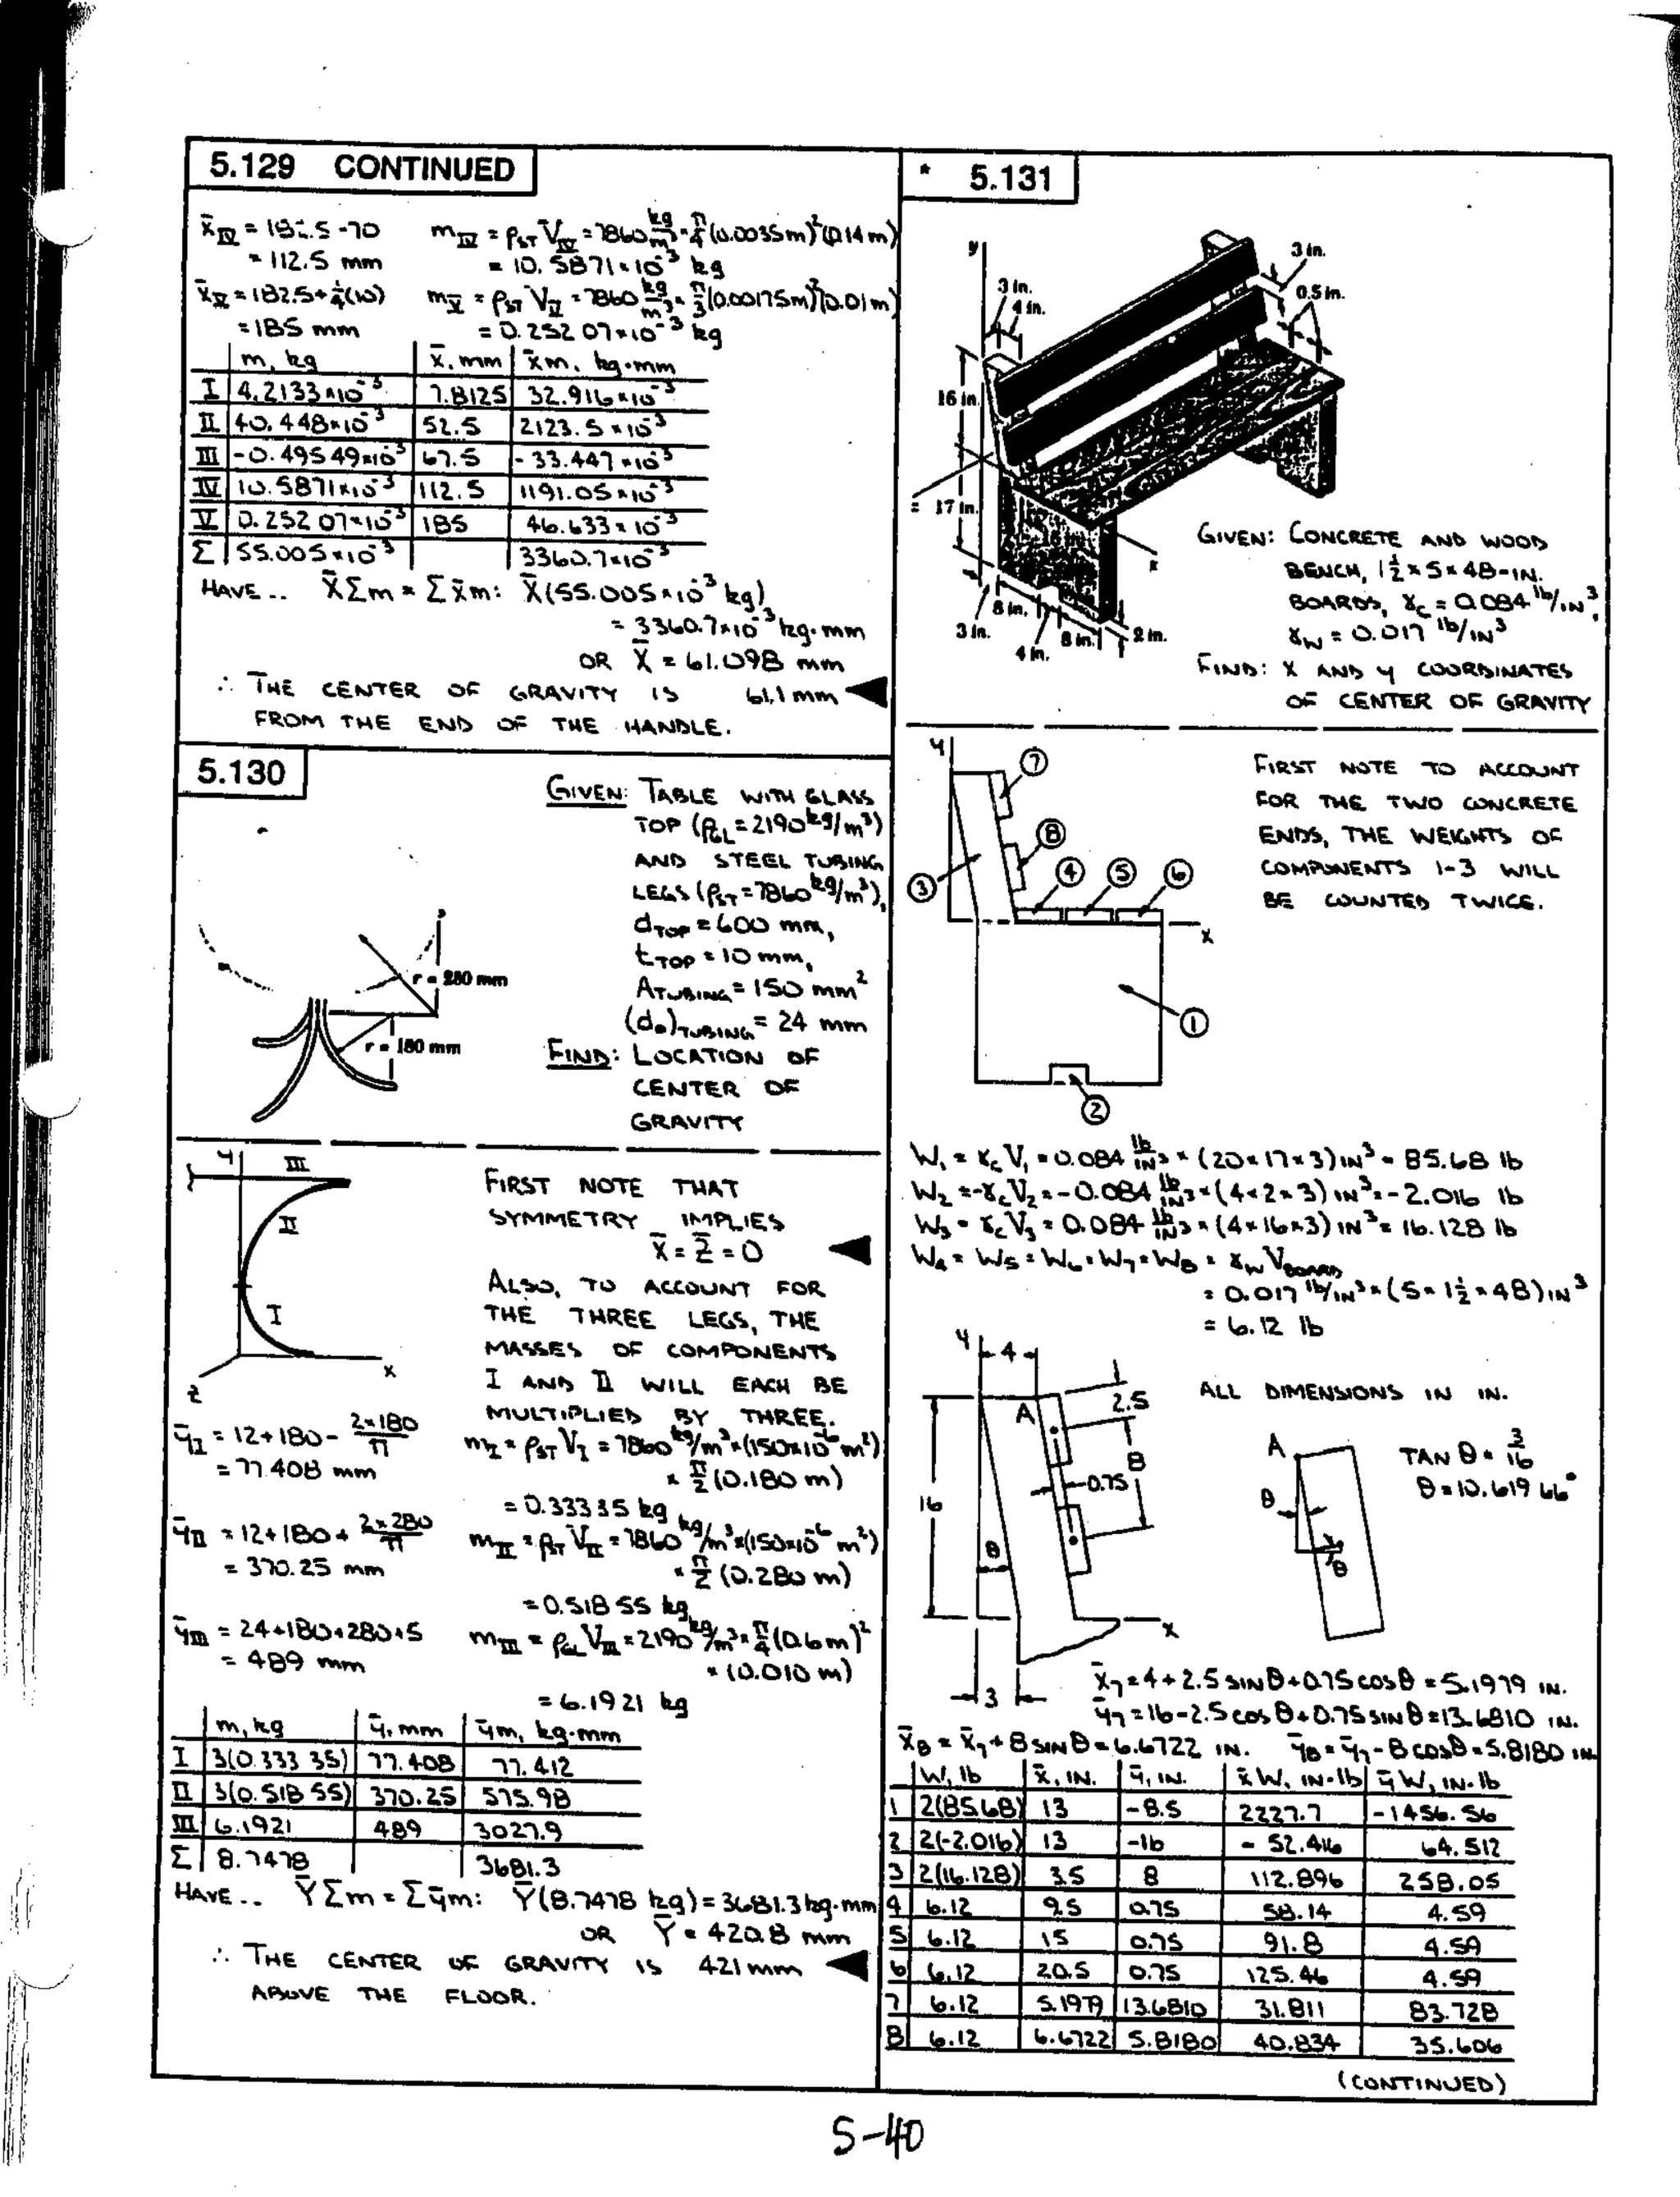 5.129 CONTINUED
x̄_IV = 182.5 - 70
= 112.5 mm
m_IV = ρ_ST V_IV = 7860 kg/m³ × π/4 (0.0035m)² (0.14 m)
= 10.5871×10⁻³ kg
x̄_V = 182.5 + ¼(10)
= 185 mm
m_V = ρ_ST V_V = 7860 kg/m³ × π/3 (0.00175m)² (0.01m)
= 0.252 07×10⁻³ kg
m, kg | x̄, mm | x̄m, kg·mm
I | 4.2133×10⁻³ | 7.8125 | 32.916×10⁻³
II | 40.448×10⁻³ | 52.5 | 2123.5×10⁻³
III | -0.49549×10⁻³ | 67.5 | -33.447×10⁻³
IV | 10.5871×10⁻³ | 112.5 | 1191.05×10⁻³
V | 0.252 07×10⁻³ | 185 | 46.633×10⁻³
Σ | 55.005×10⁻³ | 3360.7×10⁻³
HAVE.. X̄Σm = Σx̄m: X̄(55.005×10⁻³ kg)
= 3360.7×10⁻³ kg·mm
OR X̄ = 61.098 mm
∴ THE CENTER OF GRAVITY IS 61.1 mm ◄
FROM THE END OF THE HANDLE.
5.130
GIVEN: TABLE WITH GLASS
TOP (ρ_GL = 2190 kg/m³)
AND STEEL TUBING
LEGS (ρ_ST = 7860 kg/m³),
d_TOP = 600 mm,
t_TOP = 10 mm,
A_TUBING = 150 mm²
(d₀)_TUBING = 24 mm
FIND: LOCATION OF
CENTER OF
GRAVITY
r = 280 mm
r = 180 mm
y
III
II
I
x
z
FIRST NOTE THAT
SYMMETRY IMPLIES
X̄ = Z̄ = 0 ◄
ALSO, TO ACCOUNT FOR
THE THREE LEGS, THE
MASSES OF COMPONENTS
I AND II WILL EACH BE
MULTIPLIED BY THREE.
ȳ_I = 12 + 180 - 2×180/π
= 77.408 mm
m_I = ρ_ST V_I = 7860 kg/m³ × (150×10⁻⁶ m²)
× π/2 (0.180 m)
= 0.333 35 kg
ȳ_II = 12 + 180 + 2×280/π
= 370.25 mm
m_II = ρ_ST V_II = 7860 kg/m³ × (150×10⁻⁶ m²)
× π/2 (0.280 m)
= 0.518 55 kg
ȳ_III = 24 + 180 + 280 + 5
= 489 mm
m_III = ρ_GL V_III = 2190 kg/m³ × π/4 (0.6 m)²
× (0.010 m)
= 6.1921 kg
m, kg | ȳ, mm | ȳm, kg·mm
I | 3(0.333 35) | 77.408 | 77.412
II | 3(0.518 55) | 370.25 | 575.98
III | 6.1921 | 489 | 3027.9
Σ | 8.7478 | 3681.3
HAVE.. ȲΣm = Σȳm: Ȳ(8.7478 kg) = 3681.3 kg·mm
OR Ȳ = 420.8 mm
∴ THE CENTER OF GRAVITY IS 421 mm ◄
ABOVE THE FLOOR.
* 5.131
y
3 in.
0.5 in.
3 in.
4 in.
16 in.
17 in.
x
8 in.
3 in.
4 in.
8 in.
2 in.
GIVEN: CONCRETE AND WOOD
BENCH, 1½ × 5 × 48-IN.
BOARDS, γ_C = 0.084 lb/IN³,
γ_W = 0.017 lb/IN³
FIND: X AND Y COORDINATES
OF CENTER OF GRAVITY
y
7
8
4 5 6
3
x
1
2
FIRST NOTE TO ACCOUNT
FOR THE TWO CONCRETE
ENDS, THE WEIGHTS OF
COMPONENTS 1-3 WILL
BE COUNTED TWICE.
W₁ = γ_C V₁ = 0.084 lb/IN³ × (20×17×3) IN³ = 85.68 lb
W₂ = -γ_C V₂ = -0.084 lb/IN³ × (4×2×3) IN³ = -2.016 lb
W₃ = γ_C V₃ = 0.084 lb/IN³ × (4×16×3) IN³ = 16.128 lb
W₄ = W₅ = W₆ = W₇ = W₈ = γ_W V_BOARD
= 0.017 lb/IN³ × (5 × 1½ × 48) IN³
= 6.12 lb
y
4
2.5
A
8
0.75
16
θ
x
3
ALL DIMENSIONS IN IN.
A
θ
θ
TAN θ = 3/16
θ = 10.619 66°
x̄₇ = 4 + 2.5 SIN θ + 0.75 COS θ = 5.1979 IN.
ȳ₇ = 16 - 2.5 COS θ + 0.75 SIN θ = 13.6810 IN.
x̄₈ = x̄₇ + 8 SIN θ = 6.6722 IN. ȳ₈ = ȳ₇ - 8 COS θ = 5.8180 IN.
W, lb | x̄, IN. | ȳ, IN. | x̄W, IN·lb | ȳW, IN·lb
1 | 2(85.68) | 13 | -8.5 | 2227.7 | -1456.56
2 | 2(-2.016) | 13 | -16 | -52.416 | 64.512
3 | 2(16.128) | 3.5 | 8 | 112.896 | 258.05
4 | 6.12 | 9.5 | 0.75 | 58.14 | 4.59
5 | 6.12 | 15 | 0.75 | 91.8 | 4.59
6 | 6.12 | 20.5 | 0.75 | 125.46 | 4.59
7 | 6.12 | 5.1979 | 13.6810 | 31.811 | 83.728
8 | 6.12 | 6.6722 | 5.8180 | 40.834 | 35.606
(CONTINUED)
5-40